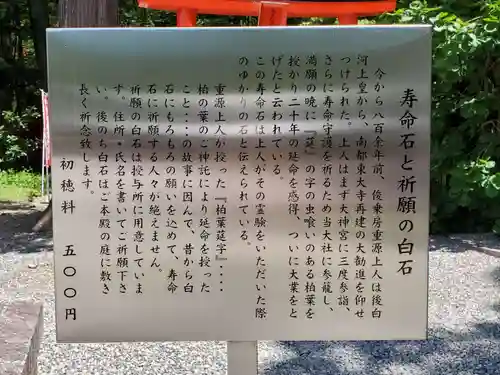 寿命石と祈願の白石
今から八百余年前、俊乗房重源上人は後白
河上皇から、南都東大寺再建の大勧進を仰せ
つけられた。上人はまず大神宮に三度参詣、
さらに寿命守護を祈るため当大社に参籠し、
満願の暁に『莚』の字の虫喰いのある柏葉を
授かり二十年の延命を感得、ついに大業をと
げたと云われている。
この寿命石は上人がその霊験をいただいた際
のゆかりの石と伝えられている。
重源上人の『柏葉莚字』‥‥
柏の葉のご神託により延命を授った
こと‥‥の故事に因んで、昔から白
石にもろもろの願いを込めて、寿命
石に祈願する人々が絶えません。
祈願の白石は授与所に用意していま
す。住所・氏名を書いてご祈願下さ
い。後のち白石はご本殿の庭に敷き
長く祈念致します。
初穂料　五〇〇円